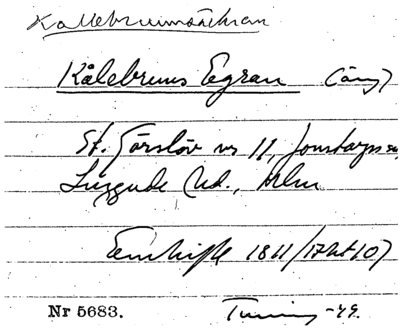 Kallebrunsåkran
Kålebruns Egran (äng)
St. Görslöv nr 11, Jonstorps sn,
Luggude hd., Mlm
Enskifte 1811/
Nr 5683. -49.